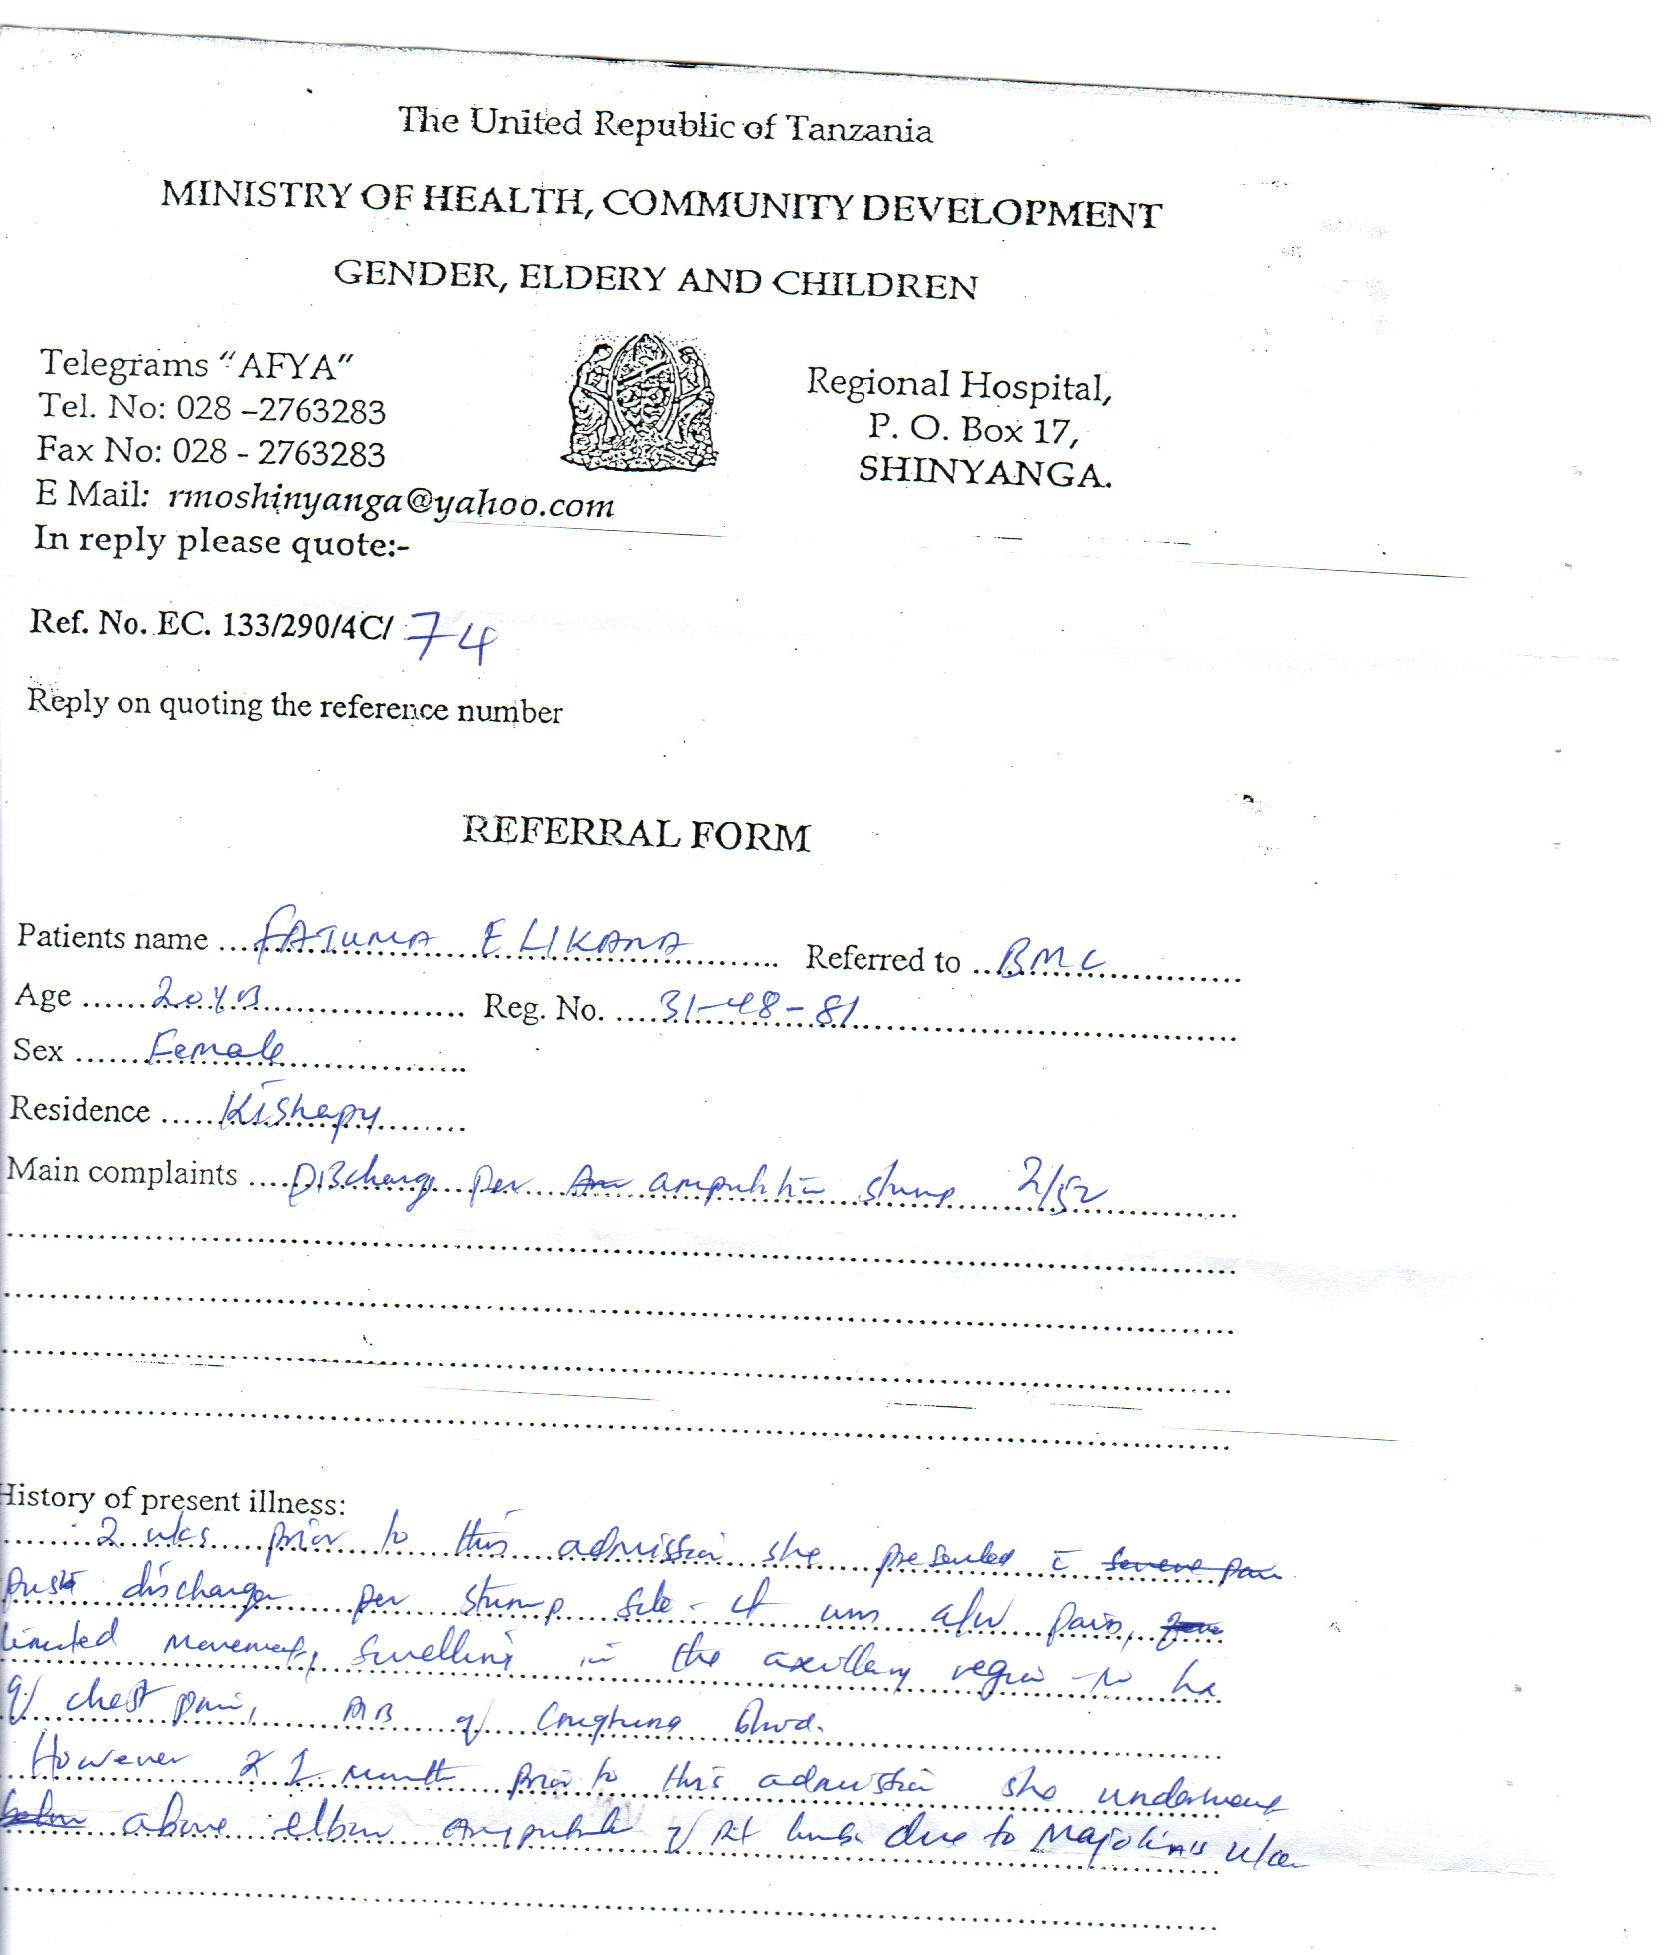 The United Republic of Tanzania
MINISTRY OF HEALTH, COMMUNITY DEVELOPMENT
GENDER, ELDERY AND CHILDREN
Telegrams "AFYA"
Tel. No: 028 –2763283
Fax No: 028 - 2763283
E Mail: rmoshinyanga@yahoo.com
In reply please quote:-
Regional Hospital,
P. O. Box 17,
SHINYANGA.
Ref. No. EC. 133/290/4C/ 74
Reply on quoting the reference number
REFERRAL FORM
Patients name FATUMA ELIKANA Referred to BMC
Age 20yrs Reg. No. 31-48-81
Sex Female
Residence Kishapu
Main complaints Discharge per amputation stump 2/52
History of present illness:
2 wks prior to this admission she presented c̄
discharge per stump site - it was a/w pain,
limited movement, swelling in the axillary region - No hx
of chest pain, of coughing blood.
However 1 month prior to this admission she underwent
above elbow amputation of Rt limb due to Majolin's ulcer